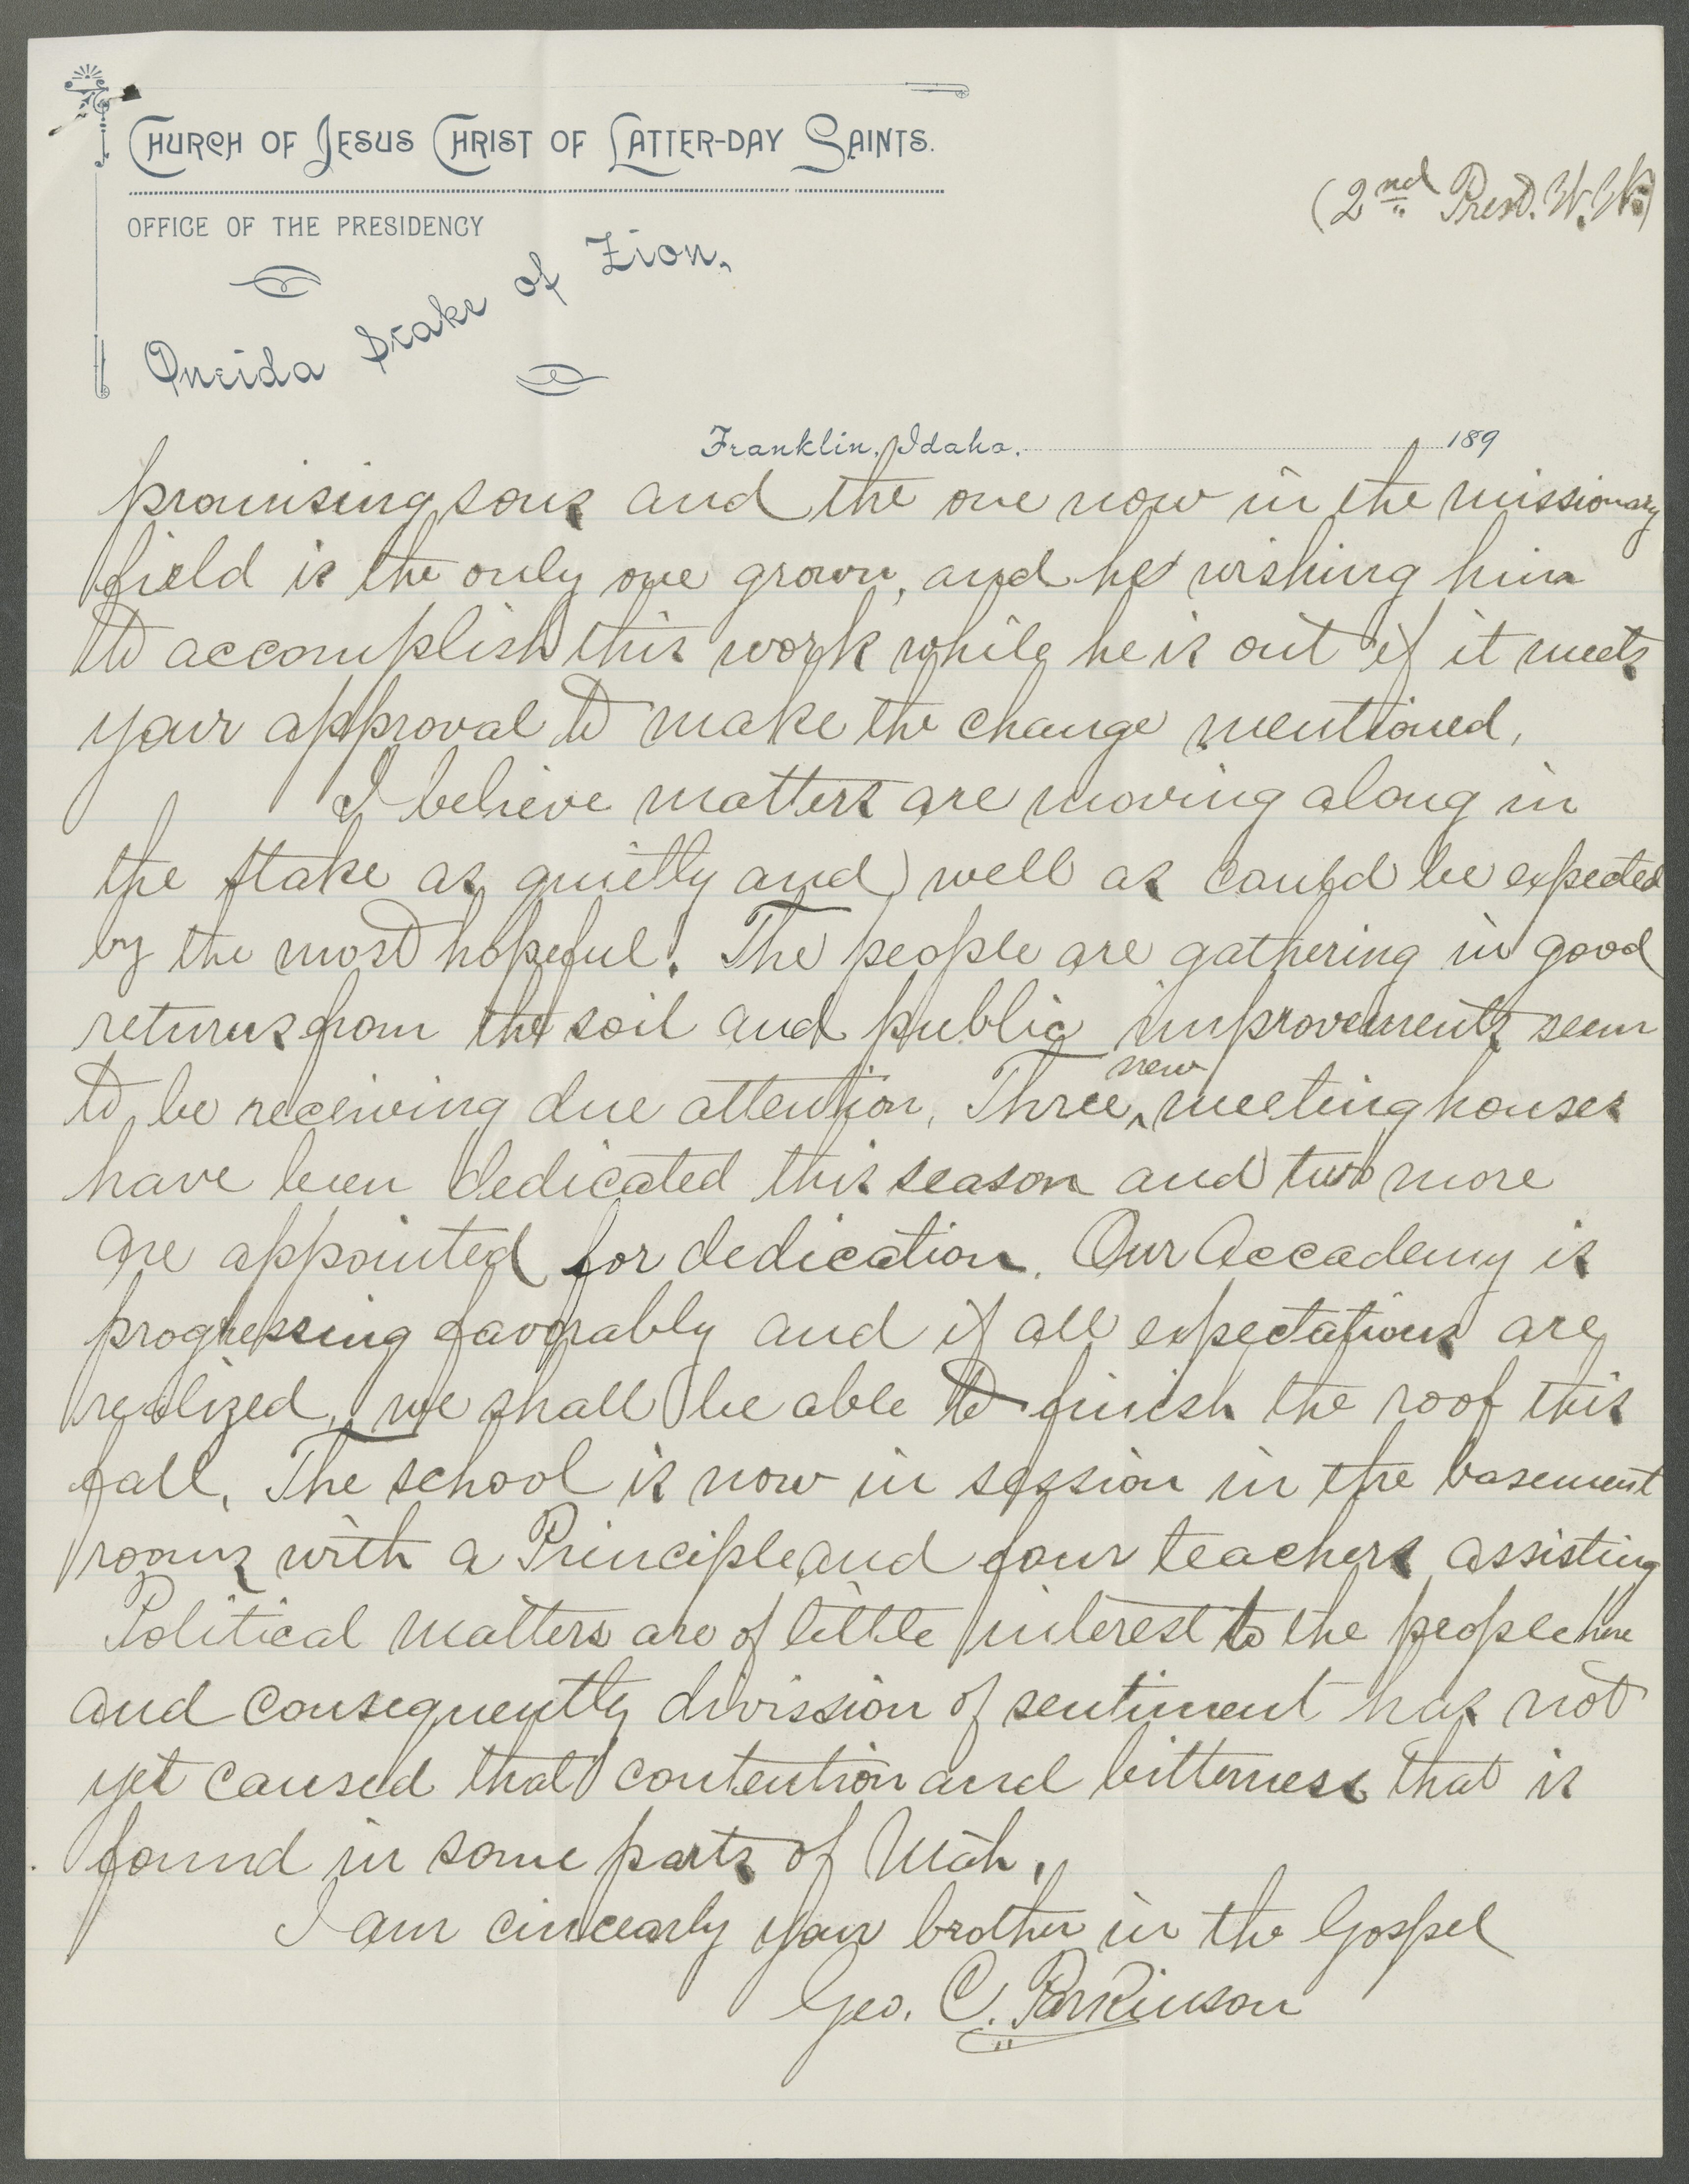 CHURCH OF JESUS CHRIST OF LATTER-DAY SAINTS.
OFFICE OF THE PRESIDENCY
(2nd Prest. W. W.)
Oneida Stake of Zion,
Franklin, Idaho. 189
promising sons and the one now in the missionary
field is the only one grown, and he wishing him
to accomplish this work while he is out if it meets
your approval to make the change mentioned,
I believe matters are moving along in
the stake as quietly and well as could be expected
by the most hopeful. The people are gathering in good
returns from the soil and public improvements seem
to be receiving due attention, Three ^new meeting houses
have been dedicated this season and two more
are appointed for dedication. Our Accademy is
progressing favorably and if all expectations are
realized, we shall be able to finish the roof this
fall, The school is now in session in the basement
rooms with a Principle and four teachers assisting
Political matters are of little interest to the people here
and consequently division of sentiment has not
yet caused that contention and bitterness that is
found in some parts of Utah,
I am cincearly your brother in the Gospel
Geo. C. Parkinson